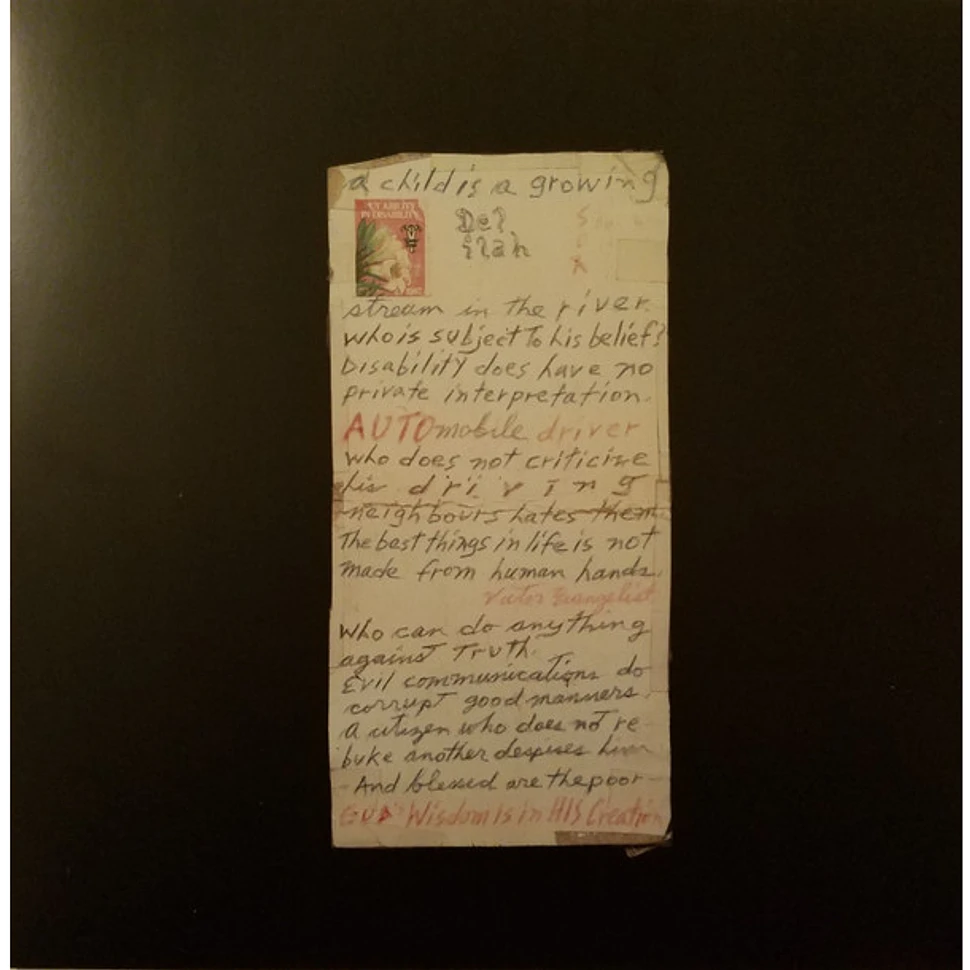 a child is a growing
MY ABILITY
IN DISABILITY
Del
ilah
stream in the river.
who is subject to his belief?
Disability does have no
private interpretation.
AUTOmobile driver
who does not criticize
his driving
neighbours hates them
The best things in life is not
made from human hands.
Evangelist
Who can do anything
against Truth.
Evil communications do
corrupt good manners.
A citizen who does not re-
buke another despises him
And blessed are the poor
Wisdom is in HIS Creation